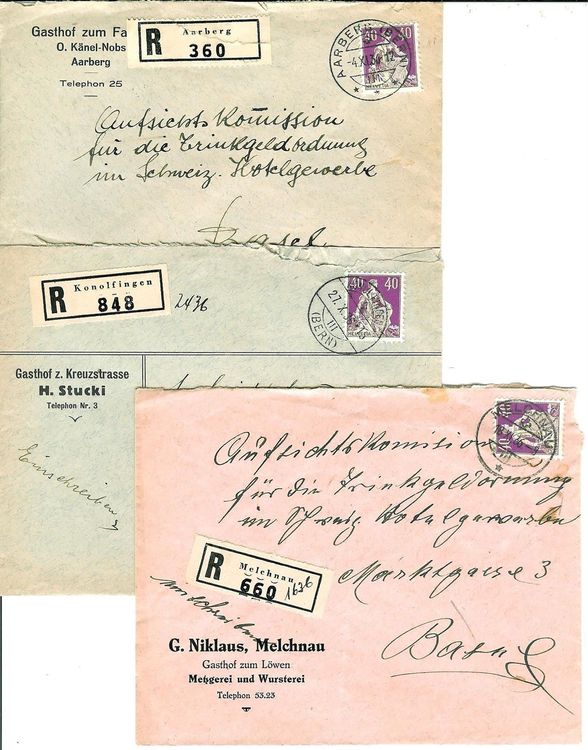 Gasthof zum Fa
O. Känel-Nobs
Aarberg
Telephon 25
R Aarberg
360
AARBERG (BERN)
-4.XI.
40 40
HELVETIA
Aufsichts Kommission
für die Trinkgeldordnung
im Schweiz. Hotelgewerbe
Basel.
R Konolfingen
848
2436
27.X.
III
(BERN)
40 40
HELVETIA
Gasthof z. Kreuzstrasse
H. Stucki
Telephon Nr. 3
Einschreiben
MELCHNAU
Aufsichtskomision
für die Trinkgeldornung
im Schweiz Hotelgewerbe
Marktgasse 3
Basel
R Melchnau
660
1636
G. Niklaus, Melchnau
Gasthof zum Löwen
Metzgerei und Wursterei
Telephon 53.23